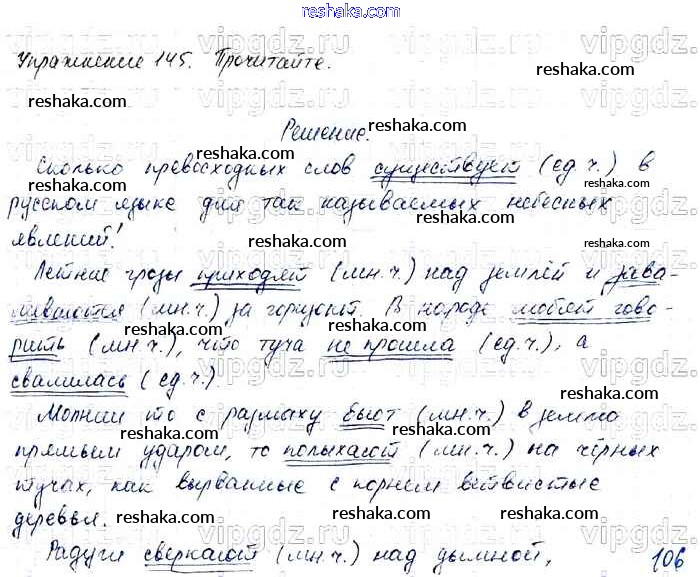 reshaka.com
Упражнение 145. Прочитайте.
Решение.
Сколько превосходных слов существует (ед.ч.) в
русском языке для так называемых небесных
явлений!
Летние грозы приходят (мн.ч.) над землёй и зава-
ливаются (мн.ч.) за горизонт. В народе любят гово-
рить (мн.ч.), что туча не прошла (ед.ч.), а
свалилась (ед.ч.).
Молнии то с размаху бьют (мн.ч.) в землю
прямым ударом, то полыхают (мн.ч.) на чёрных
тучах, как вырванные с корнем ветвистые
деревья.
Радуги сверкают (мн.ч.) над дымной,
106